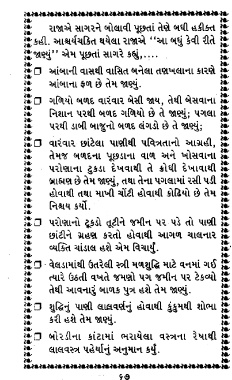 રાજાએ સાગરને બોલાવી પૂછતાં તેણે બધી હકીકત
કહી. આશ્ચર્યચકિત થયેલા રાજાએ “આ બધું કેવી રીતે
જાણ્યું” એમ પૂછતાં સાગરે કહ્યું,....
આંબાની વાસથી વાસિત બનેલા તણખલાના કારણે
આંબાના ફળ છે તેમ જાણ્યું.
ગળિયો બળદ વારંવાર બેસી જાય, તેથી બેસવાના
નિશાન પરથી બળદ ગળિયો છે તે જાણ્યું; પગલા
પરથી ડાબી બાજુનો બળદ લંગડો છે તે જાણ્યું;
વારંવાર છાંટેલા પાણીથી પવિત્રતાનો આગ્રહી,
તેમજ બળદના પૂછડાના વાળ અને ખોસવાના
પરોણાના ટુકડા દેખવાથી તે ક્રોધી દેખાવાથી
બ્રાહ્મણ છે તેમ જાણ્યું, તથા તેના પગલામાં રસી પડી
હોવાથી તથા માખી ચોંટી હોવાથી કોઢિયો છે તેમ
નિશ્ચય કર્યો.
પરોણાનો ટૂકડો તૂટીને જમીન પર પડે તો પાણી
છાંટીને ગ્રહણ કરતો હોવાથી આગળ ચાલનાર
વ્યક્તિ ચંડાલ હશે એમ વિચાર્યું.
વેલડામાંથી ઉતરેલી સ્ત્રી મળશુદ્ધિ માટે વનમાં ગઈ
ત્યારે ઉઠતી વખતે જમણો પગ જમીન પર ટેકવ્યો
તેથી આવનારું બાળક પુત્ર હશે તેમ જાણ્યું.
શુદ્ધિનું પાણી લાલવર્ણનું હોવાથી કુંકુમથી શોભા
કરી હશે તેમ જાણ્યું.
બોરડીના કાંટામાં ભરાયેલા વસ્ત્રના રેષાથી
લાલવસ્ત્ર પહેર્યાનું અનુમાન કર્યું.
૬૭